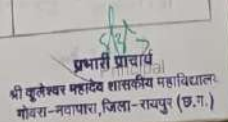 प्रभारी प्राचार्य
Principal
श्री कुलेश्वर महादेव शासकीय महाविद्यालय
गोबरा-नवापारा, जिला-रायपुर (छ.ग.)